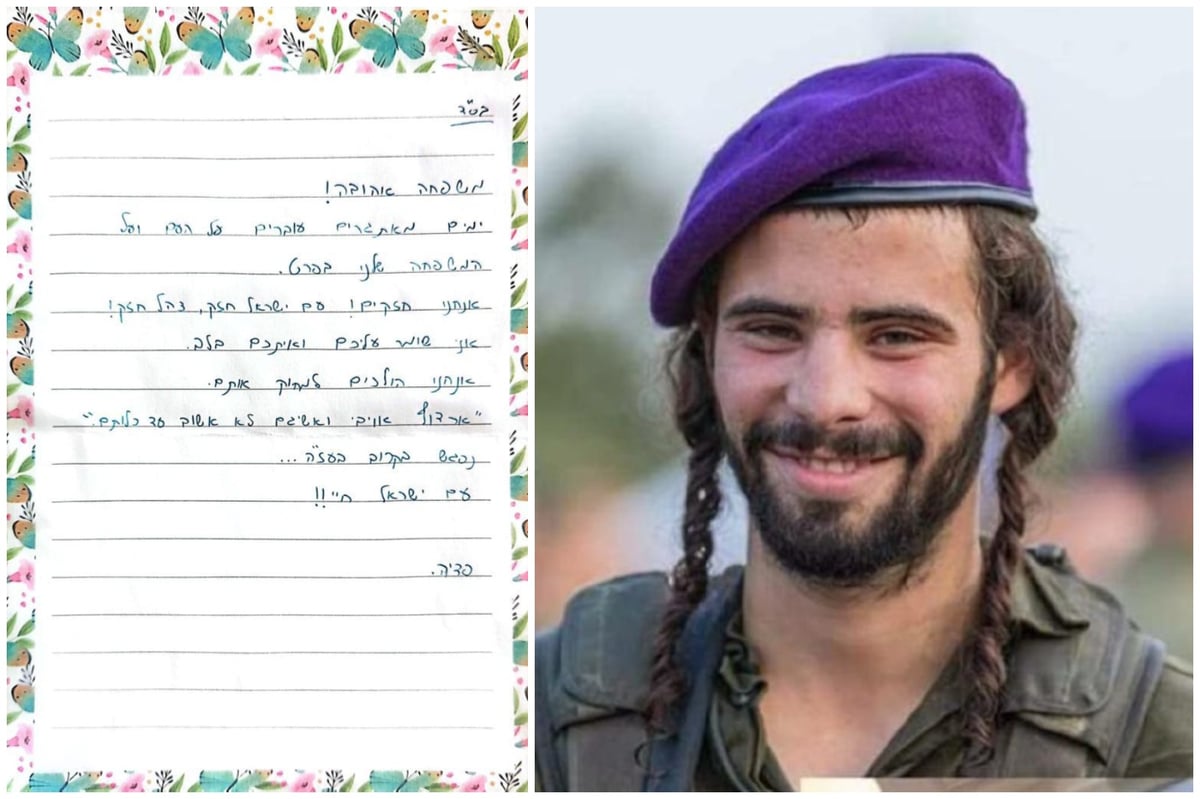 בס"ד
משפחה אהובה!
ימים מאתגרים עוברים על העם ועל
המשפחה שלי בפרט.
אנחנו חזקים! עם ישראל חזק, צהל חזק!
אני שומר עליכם ואיתכם בלב.
אנחנו הולכים למחוק אותם.
"ארדוף אויבי ואשיגם לא אשוב עד כלותם."
נפגש בקרוב בעז"ה...
עם ישראל חי!!
פדיה.